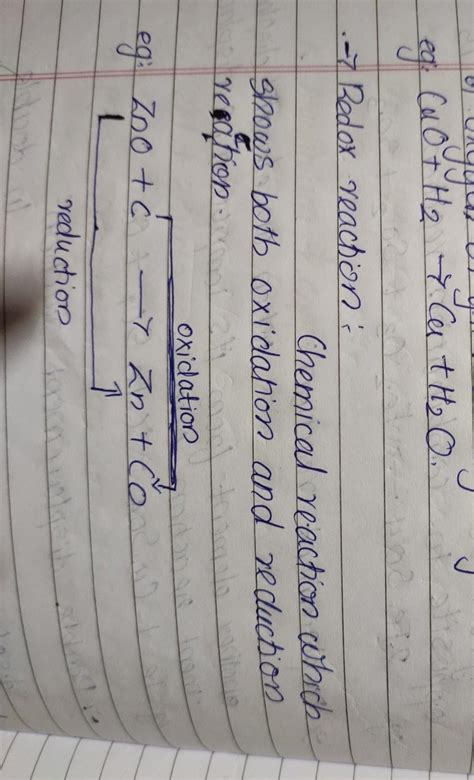 eg: CuO + H2 → Cu + H2O.
→ Redox reaction:
Chemical reaction which
shows both oxidation and reduction
reaction.
oxidation
eg: ZnO + C → Zn + CO
reduction